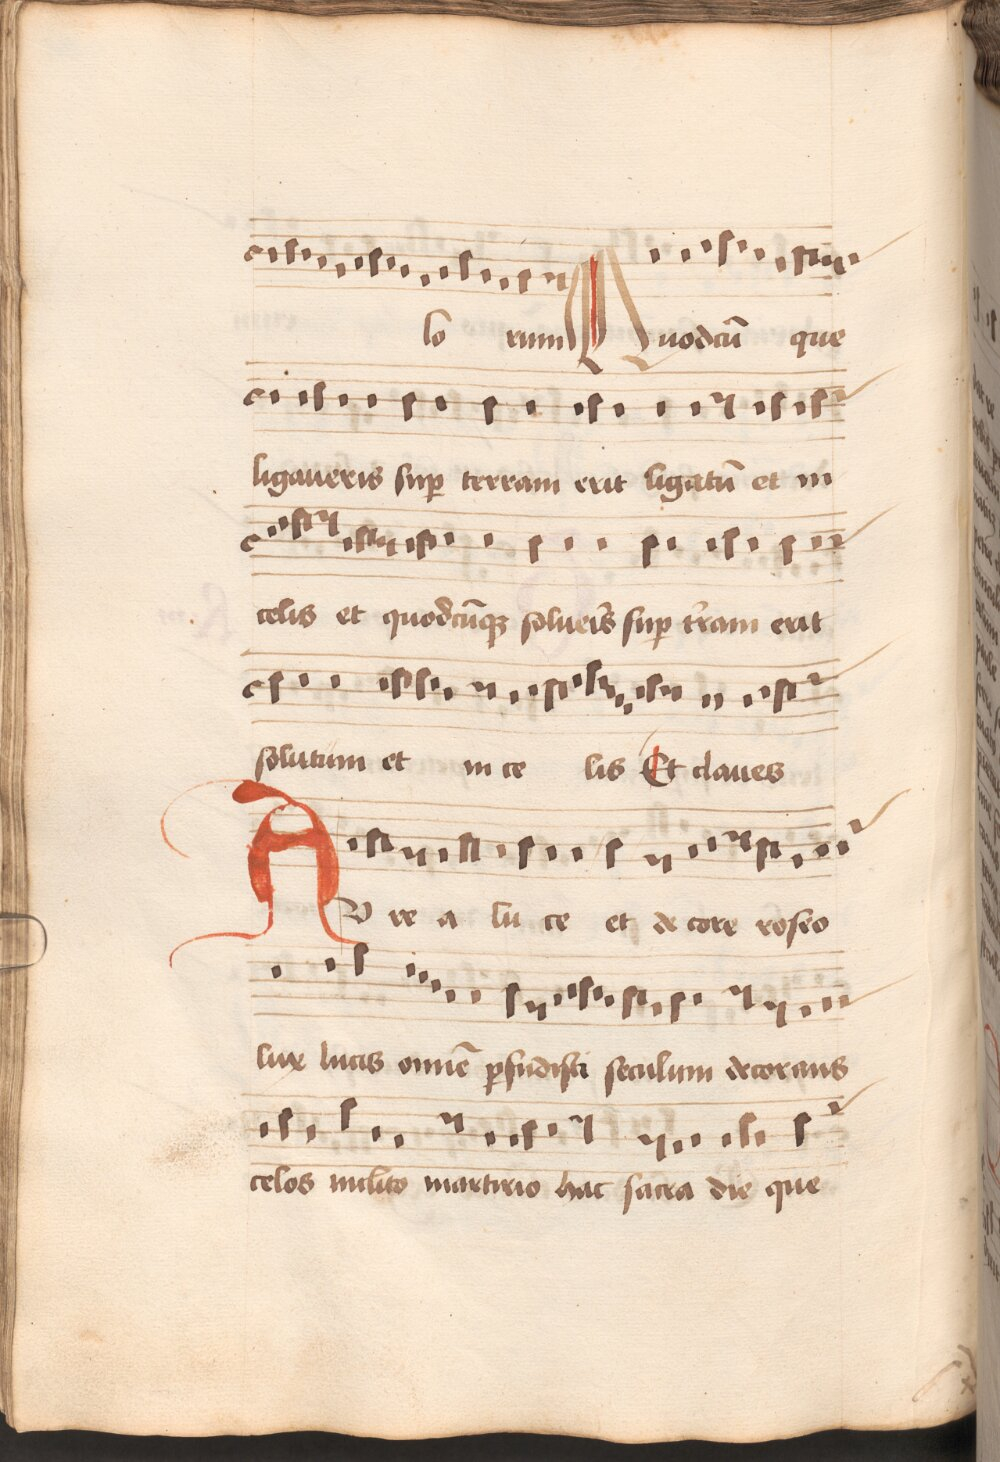 lo rum Quodcū que
ligaueris sup terram erit ligatū et in
celis et quodcūqꝫ solueis sup tram erit
solutum et in ce lis Et claues
AV re a lu ce et de core roseo
lux lucis omnē pfudisti seculum decorans
celos inclito martirio hac sacra die que